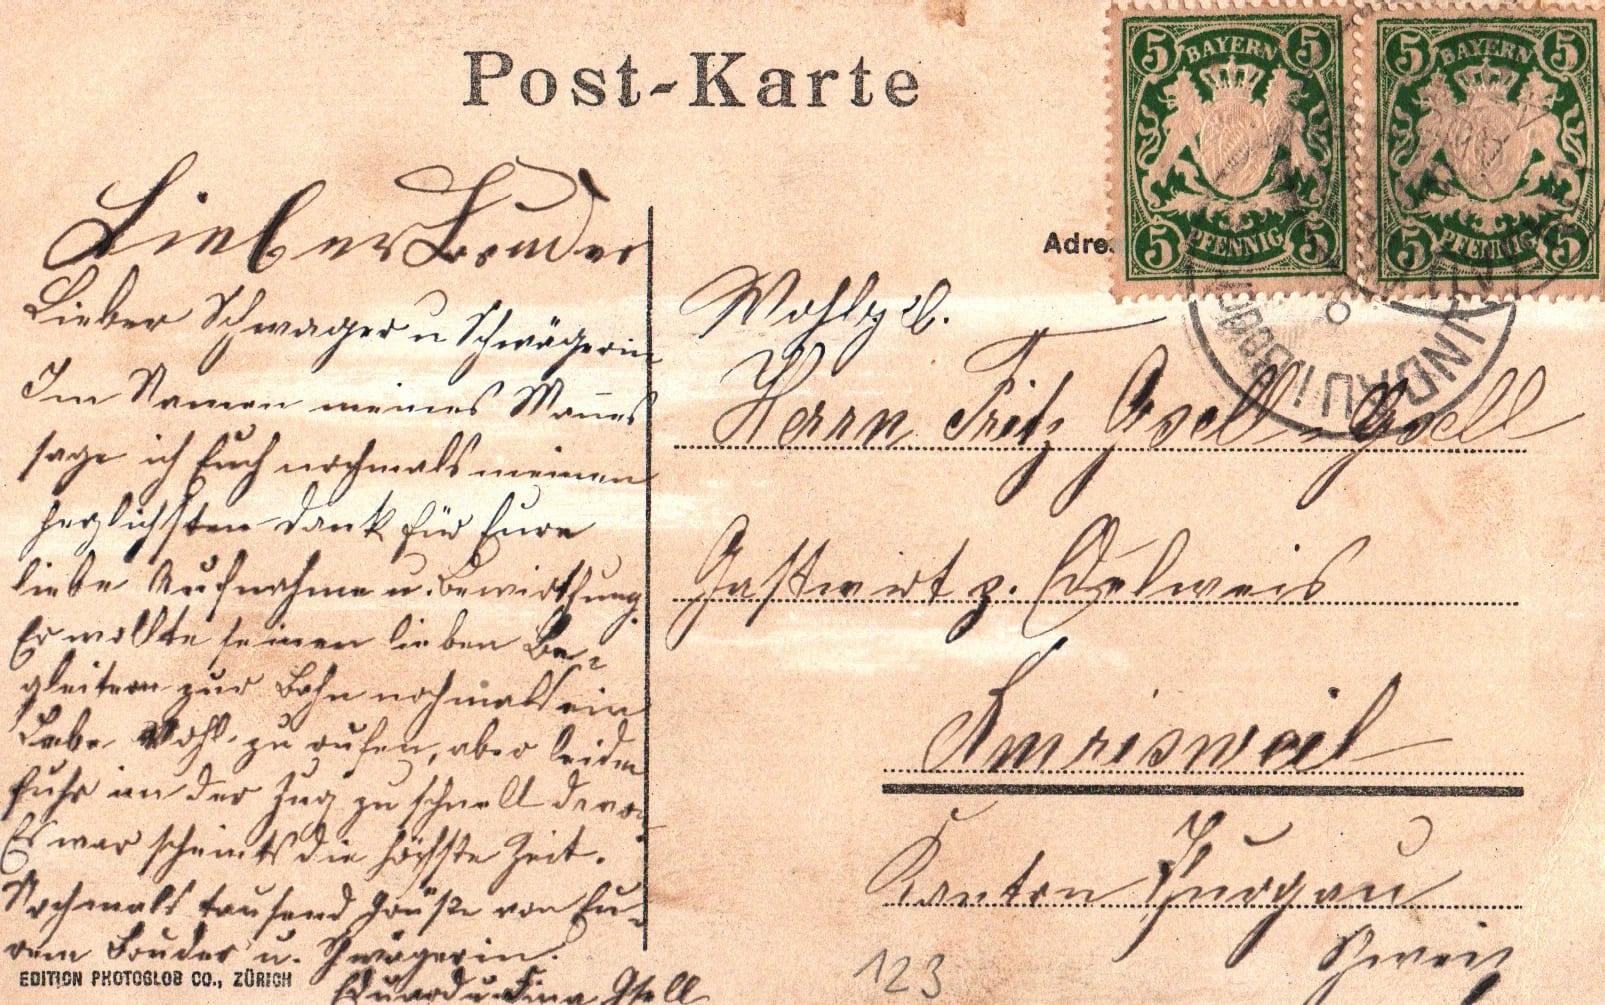 Post-Karte
5 BAYERN 5
5 PFENNIG 5
5 BAYERN 5
5 PFENNIG 5
Adre
LINDAU i. Bod
Lieber Bruder
Lieber Schwager u Schwägerin
Im Namen meines Mannes
sage ich Euch nochmals meinen
herzlichsten Dank für Eure
liebe Aufnahme u. Bewirthung.
Er wollte seinen lieben Be-
gleitern zur Bahn nochmals ein
Lebe Wohl zu rufen, aber leider
fuhr der Zug zu schnell davon
Es war scheints die höchste Zeit.
Nochmals tausend Grüße von Eu-
rem Bruder u. Schwägerin.
Eduard u. Fina Gsell
Wohlgeb.
Herrn Fritz Gsell-Gsell
Gastwirt z. Edelweis
Amrisweil
Kanton Thurgau
Schweiz
123
EDITION PHOTOGLOB CO., ZÜRICH